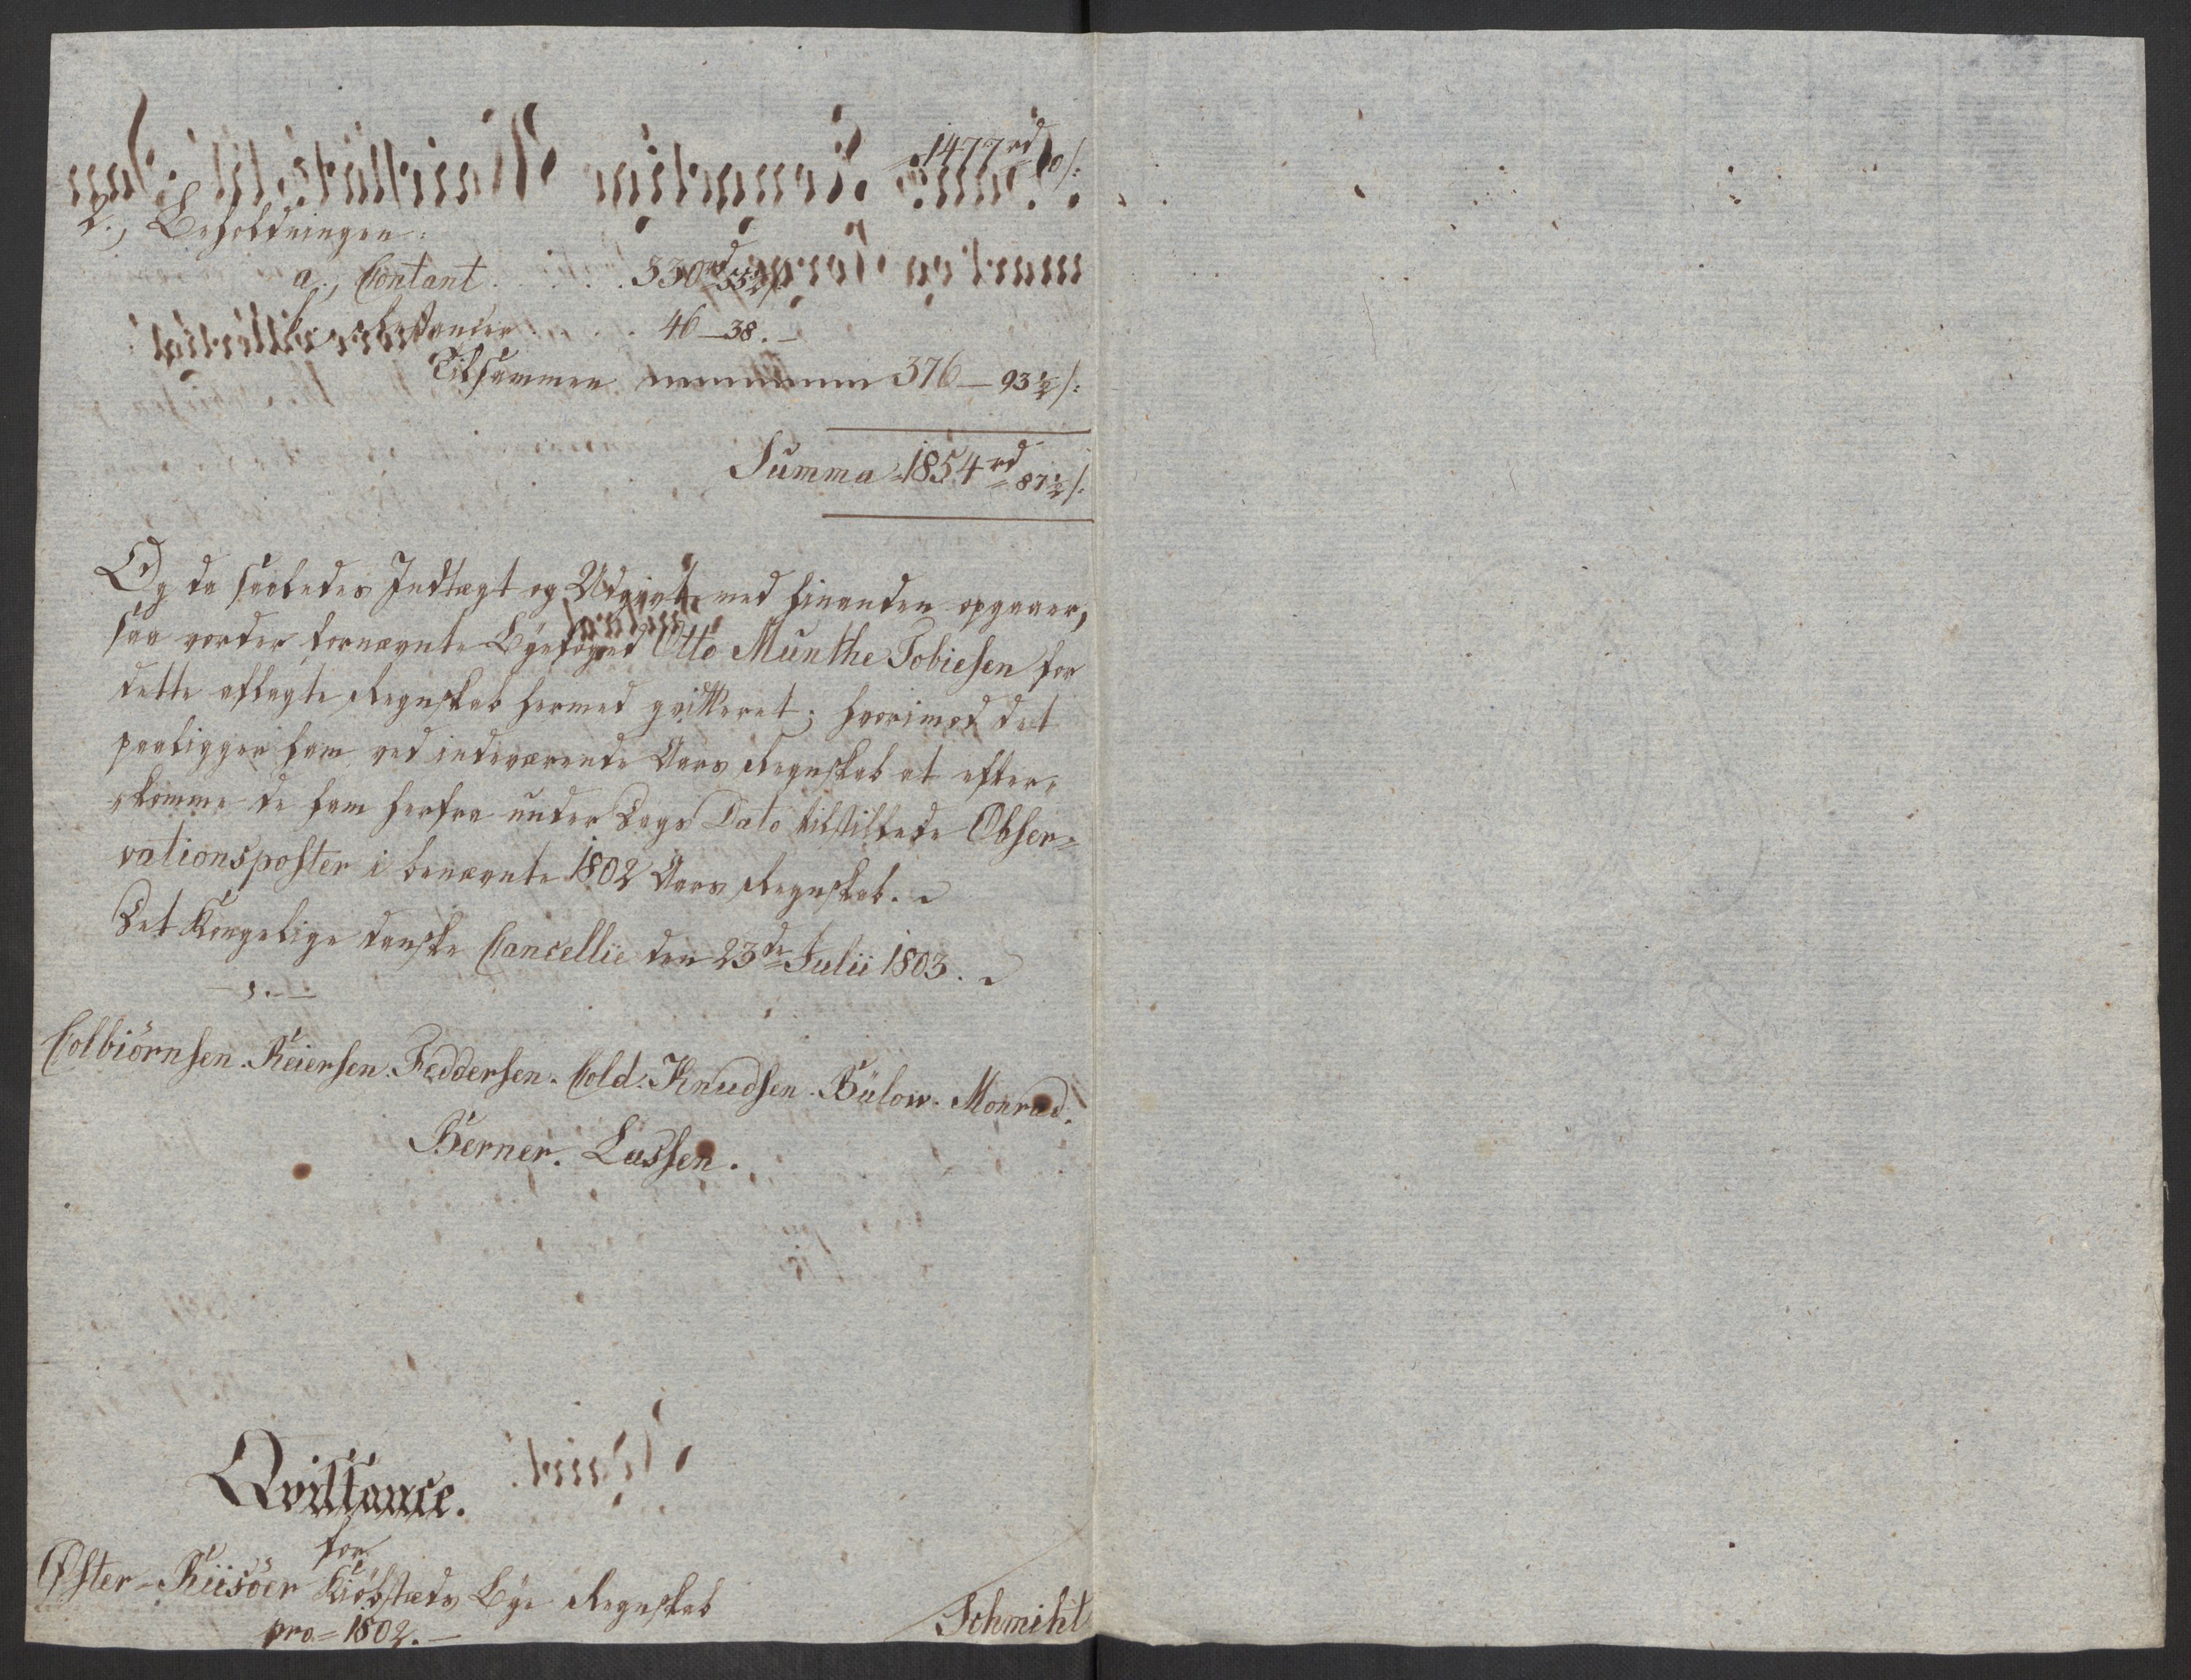 1477rd
2., Beholdningen:
a., Contant . . . . . 330rd 55½ /:
b., Restancer . . . . 46 – 38. –
Tilsammen 376 – 93½ /:
Summa 1854rd 87½ /:
Og da saaledes Indtægt og Udgivt med hinanden opgaaer,
saa vorder fornævnte Byefoged Otto Munthe Tobiesen for
dette aflagte Regnskab hermed qvitteret; hvorimod det
paaligger ham ved indeværende Aars Regnskab at efter-
komme de ham herfra under Dags Dato tilstillede Obser=
vationsposter i benævnte 1802 Aars Regnskab.
Det Kongelige danske Cancellie den 23de Julii 1803.
Colbiörnsen. Reiersen. Feddersen. Cold. Knudsen. Bülow. Monrad.
Berner. Lassen.
Qvittance.
for
Øster-Riisöer Kiöbstæds Bye Regnskab
pro= 1802. –
Schmiht